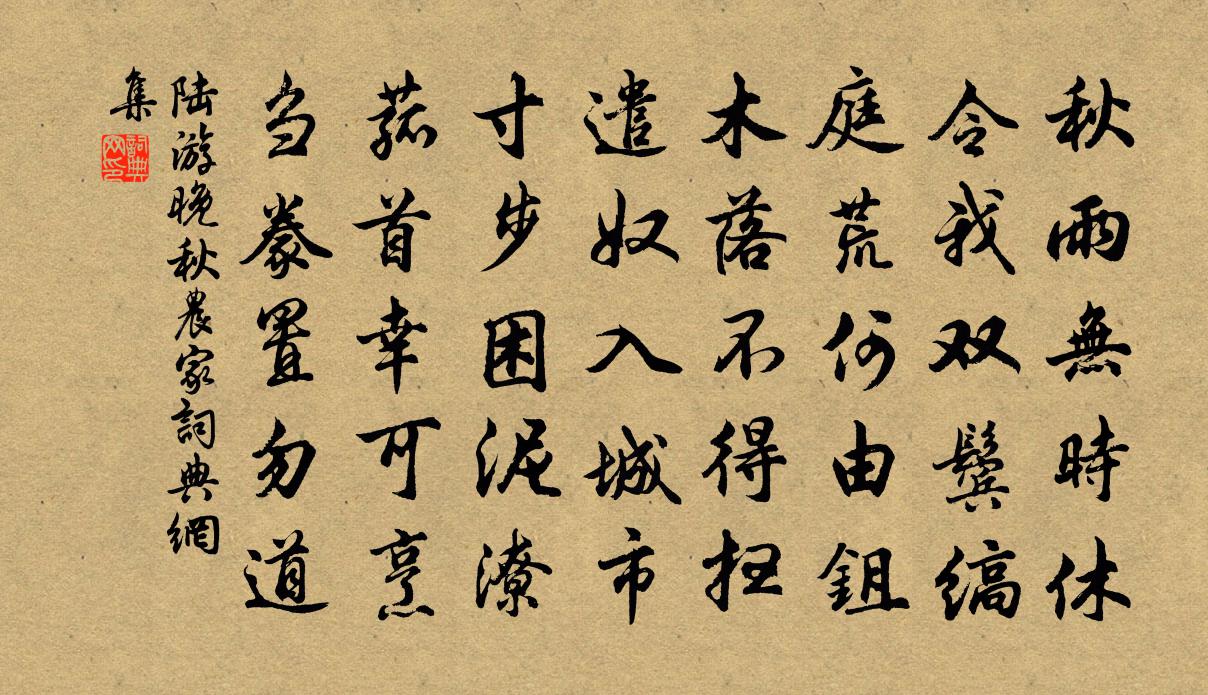 秋雨無時休
令我双鬓缟
庭荒何由鉏
木落不得扫
遣奴入城市
寸步困泥潦
菰首幸可烹
刍豢置勿道
陆游晚秋農家詞典網
集
詞典網印